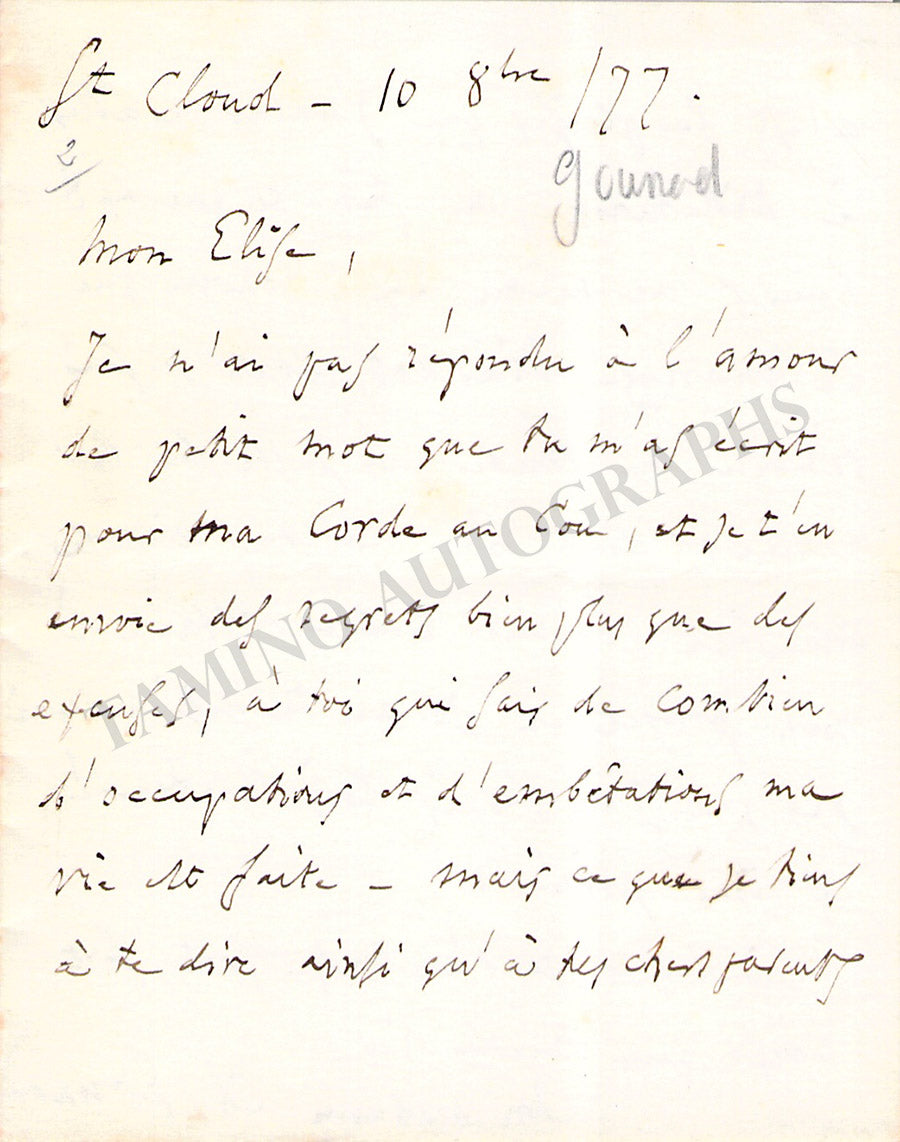 St Cloud - 10 8bre /77.
2/
Gounod
Mon Elise,
Je n'ai pas répondu à l'amour
de petit mot que tu m'as écrit
pour ma Corde au Cou, et je t'en
envoie des regrets bien plus que des
excuses, à toi qui sais de combien
d'occupations et d'embêtations ma
vie est faite - mais ce que je tiens
à te dire ainsi qu'à tes chers parents
TAMINO AUTOGRAPHS